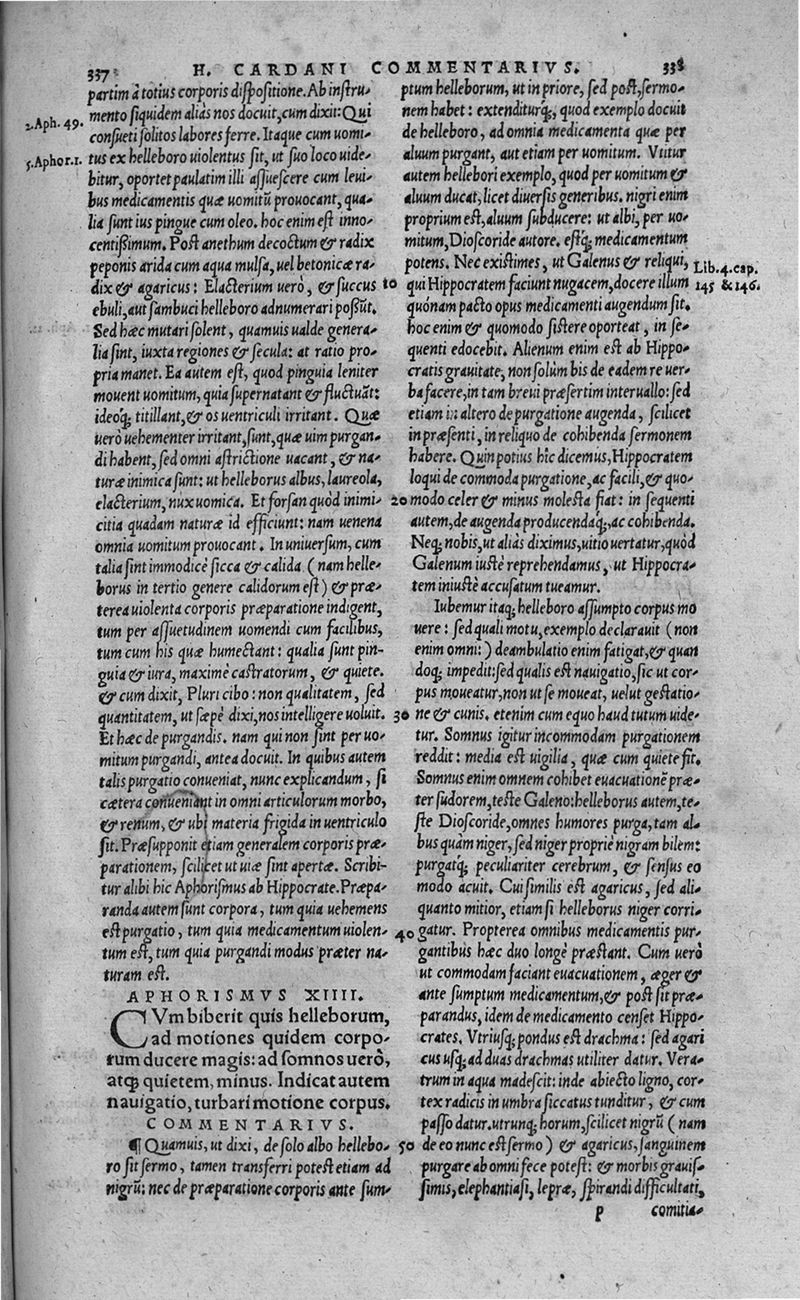 337 H. CARDANI COMMENTARIVS. 338
partim à totius corporis dispositione. Ab instru-
mento siquidem aliàs nos docuit, cum dixit: Qui
2. Aph. 49.
consueti solitos labores ferre. Itaque cum uomi-
5. Aphor. 1.
tus ex helleboro uiolentus sit, ut suo loco uide-
bitur, oportet paulatim illi assuescere cum leui-
bus medicamentis quæ uomitũ prouocant, qua-
lia sunt ius pingue cum oleo. hoc enim est inno-
centißimum. Post anethum decoctum & radix
peponis arida cum aqua mulsa, uel betonicæ ra-
dix & agaricus: Elacterium uerò, & succus
10
ebuli, aut sambuci helleboro adnumerari possũt.
Sed hæc mutari solent, quamuis ualde genera-
lia sint, iuxta regiones & secula: at ratio pro-
pria manet. Ea autem est, quod pinguia leniter
mouent uomitum, quia supernatant & fluctuãt:
ideoq́; titillant, & os uentriculi irritant. Quæ
uerò uehementer irritant, sunt, quæ uim purgan-
di habent, sed omni astrictione uacant, & na-
turæ inimica sunt: ut helleborus albus, laureola,
elacterium, nux uomica. Et forsan quòd inimi-
20
citia quadam naturæ id efficiunt: nam uenena
omnia uomitum prouocant. In uniuersum, cum
talia sint immodicè sicca & calida (nam helle-
borus in tertio genere calidorum est) & præ-
terea uiolenta corporis præparatione indigent,
tum per assuetudinem uomendi cum facilibus,
tum cum his quæ humectant: qualia sunt pin-
guia & iura, maximè castratorum, & quiete.
& cum dixit, Pluri cibo: non qualitatem, sed
quantitatem, ut sæpè dixi, nos intelligere uoluit.
30
Et hæc de purgandis. nam qui non sint per uo-
mitum purgandi, antea docuit. In quibus autem
talis purgatio conueniat, nunc explicandum, si
cætera conueniant in omni articulorum morbo,
& renum, & ubi materia frigida in uentriculo
sit. Præsupponit etiam generalem corporis præ-
parationem, scilicet ut uiæ sint apertæ. Scribi-
tur alibi hic Aphorismus ab Hippocrate. Præpa-
randa autem sunt corpora, tum quia uehemens
est purgatio, tum quia medicamentum uiolen-
40
tum est, tum quia purgandi modus præter na-
turam est.
APHORISMVS XIIII.
CVm biberit quis helleborum,
ad motiones quidem corpo-
rum ducere magis: ad somnos uerò,
atq; quietem, minus. Indicat autem
nauigatio, turbari motione corpus.
COMMENTARIVS.
¶ Quamuis, ut dixi, de solo albo hellebo-
50
ro sit sermo, tamen transferri potest etiam ad
nigrũ: nec de præparatione corporis ante sum-
ptum helleborum, ut in priore, sed post, sermo-
nem habet: extenditurq́;, quod exemplo docuit
de helleboro, ad omnia medicamenta quæ per
aluum purgant, aut etiam per uomitum. Vtitur
autem hellebori exemplo, quod per uomitum &
aluum ducat, licet diuersis generibus. nigri enim
proprium est, aluum subducere: ut albi, per uo-
mitum, Dioscoride autore. estq́; medicamentum
potens. Nec existimes, ut Galenus & reliqui,
Lib. 4. cap.
145 & 146.
qui Hippocratem faciunt nugacem, docere illum
quónam pacto opus medicamenti augendum sit.
hoc enim & quomodo sistere oporteat, in se-
quenti edocebit. Alienum enim est ab Hippo-
cratis grauitate, non solùm bis de eadem re uer-
ba facere, in tam breui præsertim interuallo: sed
etiam in altero de purgatione augenda, scilicet
in præsenti, in reliquo de cohibenda sermonem
habere. Quin potius hîc dicemus, Hippocratem
loqui de commoda purgatione, ac facili, & quo-
modo celer & minus molesta fiat: in sequenti
autem, de augenda producendaq́;, ac cohibenda.
Neq; nobis, ut aliàs diximus, uitio uertatur, quòd
Galenum iustè reprehendamus, ut Hippocra-
tem iniustè accusatum tueamur.
Iubemur itaq; helleboro assumpto corpus mo
uere: sed quali motu, exemplo declarauit (non
enim omni:) deambulatio enim fatigat, & quan
doq; impedit: sed qualis est nauigatio, sic ut cor-
pus moueatur, non ut se moueat, uelut gestatio-
ne & cunis. etenim cum equo haud tutum uide-
tur. Somnus igitur incommodam purgationem
reddit: media est uigilia, quæ cum quiete fit.
Somnus enim omnem cohibet euacuationẽ præ-
ter sudorem, teste Galeno: helleborus autem, te-
ste Dioscoride, omnes humores purgat, tam al-
bus quàm niger, sed niger propriè nigram bilem:
purgatq́; peculiariter cerebrum, & sensus eo
modo acuit. Cui similis est agaricus, sed ali-
quanto mitior, etiam si helleborus niger corri-
gatur. Propterea omnibus medicamentis pur-
gantibus hæc duo longè præstant. Cum uerò
ut commodam faciant euacuationem, æger &
ante sumptum medicamentum, & post sit præ-
parandus, idem de medicamento censet Hippo-
crates. Vtriusq; pondus est drachma: sed agari
cus usq; ad duas drachmas utiliter datur. Vera-
trum in aqua madescit: inde abiecto ligno, cor-
tex radicis in umbra siccatus tunditur, & cum
passo datur. utrunq; horum, scilicet nigrũ (nam
de eo nunc est sermo) & agaricus, sanguinem
purgare ab omni fece potest: & morbis grauis-
simis, elephantiasi, lepræ, spirandi difficultati,
p comitia-